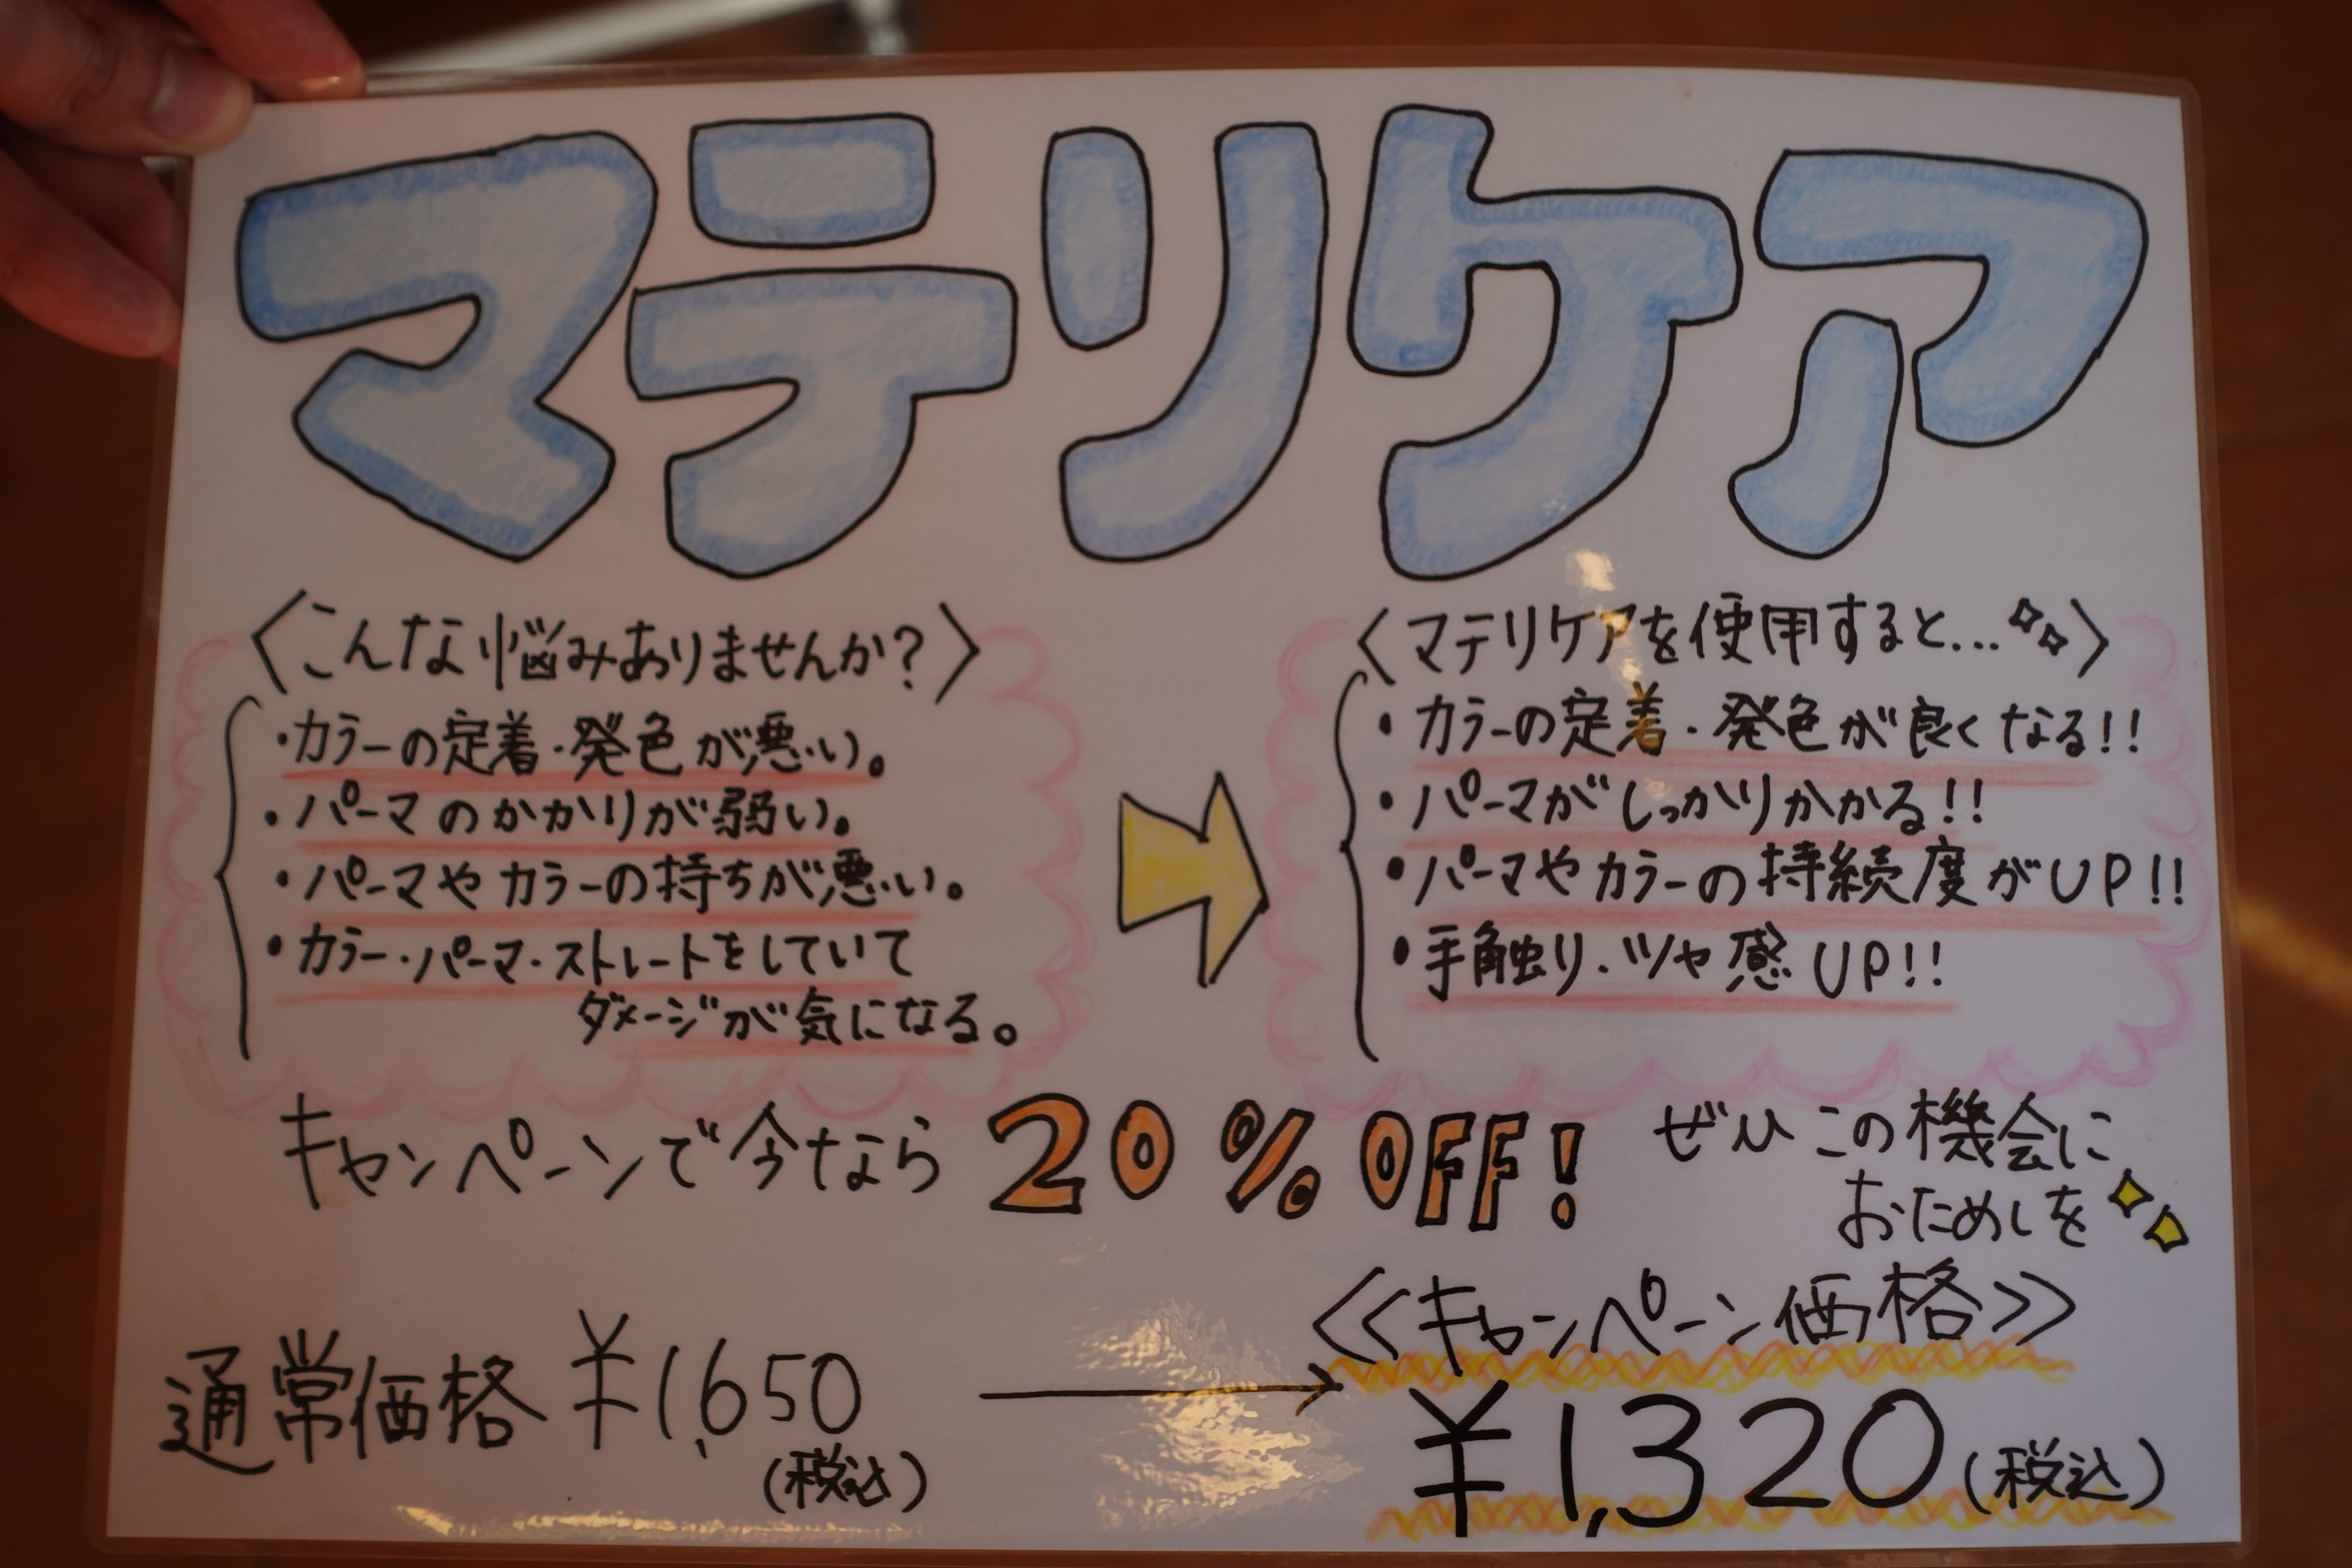 マテリケア
〈こんな悩みありませんか?〉
・カラーの定着・発色が悪い。
・パーマのかかりが弱い。
・パーマやカラーの持ちが悪い。
・カラー・パーマ・ストレートをしていて
ダメージが気になる。
〈マテリケアを使用すると…〉
・カラーの定着・発色が良くなる!!
・パーマがしっかりかかる!!
・パーマやカラーの持続度がUP!!
・手触り・ツヤ感UP!!
キャンペーンで今なら20%OFF!
ぜひこの機会に
おためしを
通常価格¥1,650
(税込)
《キャンペーン価格》
¥1,320(税込)